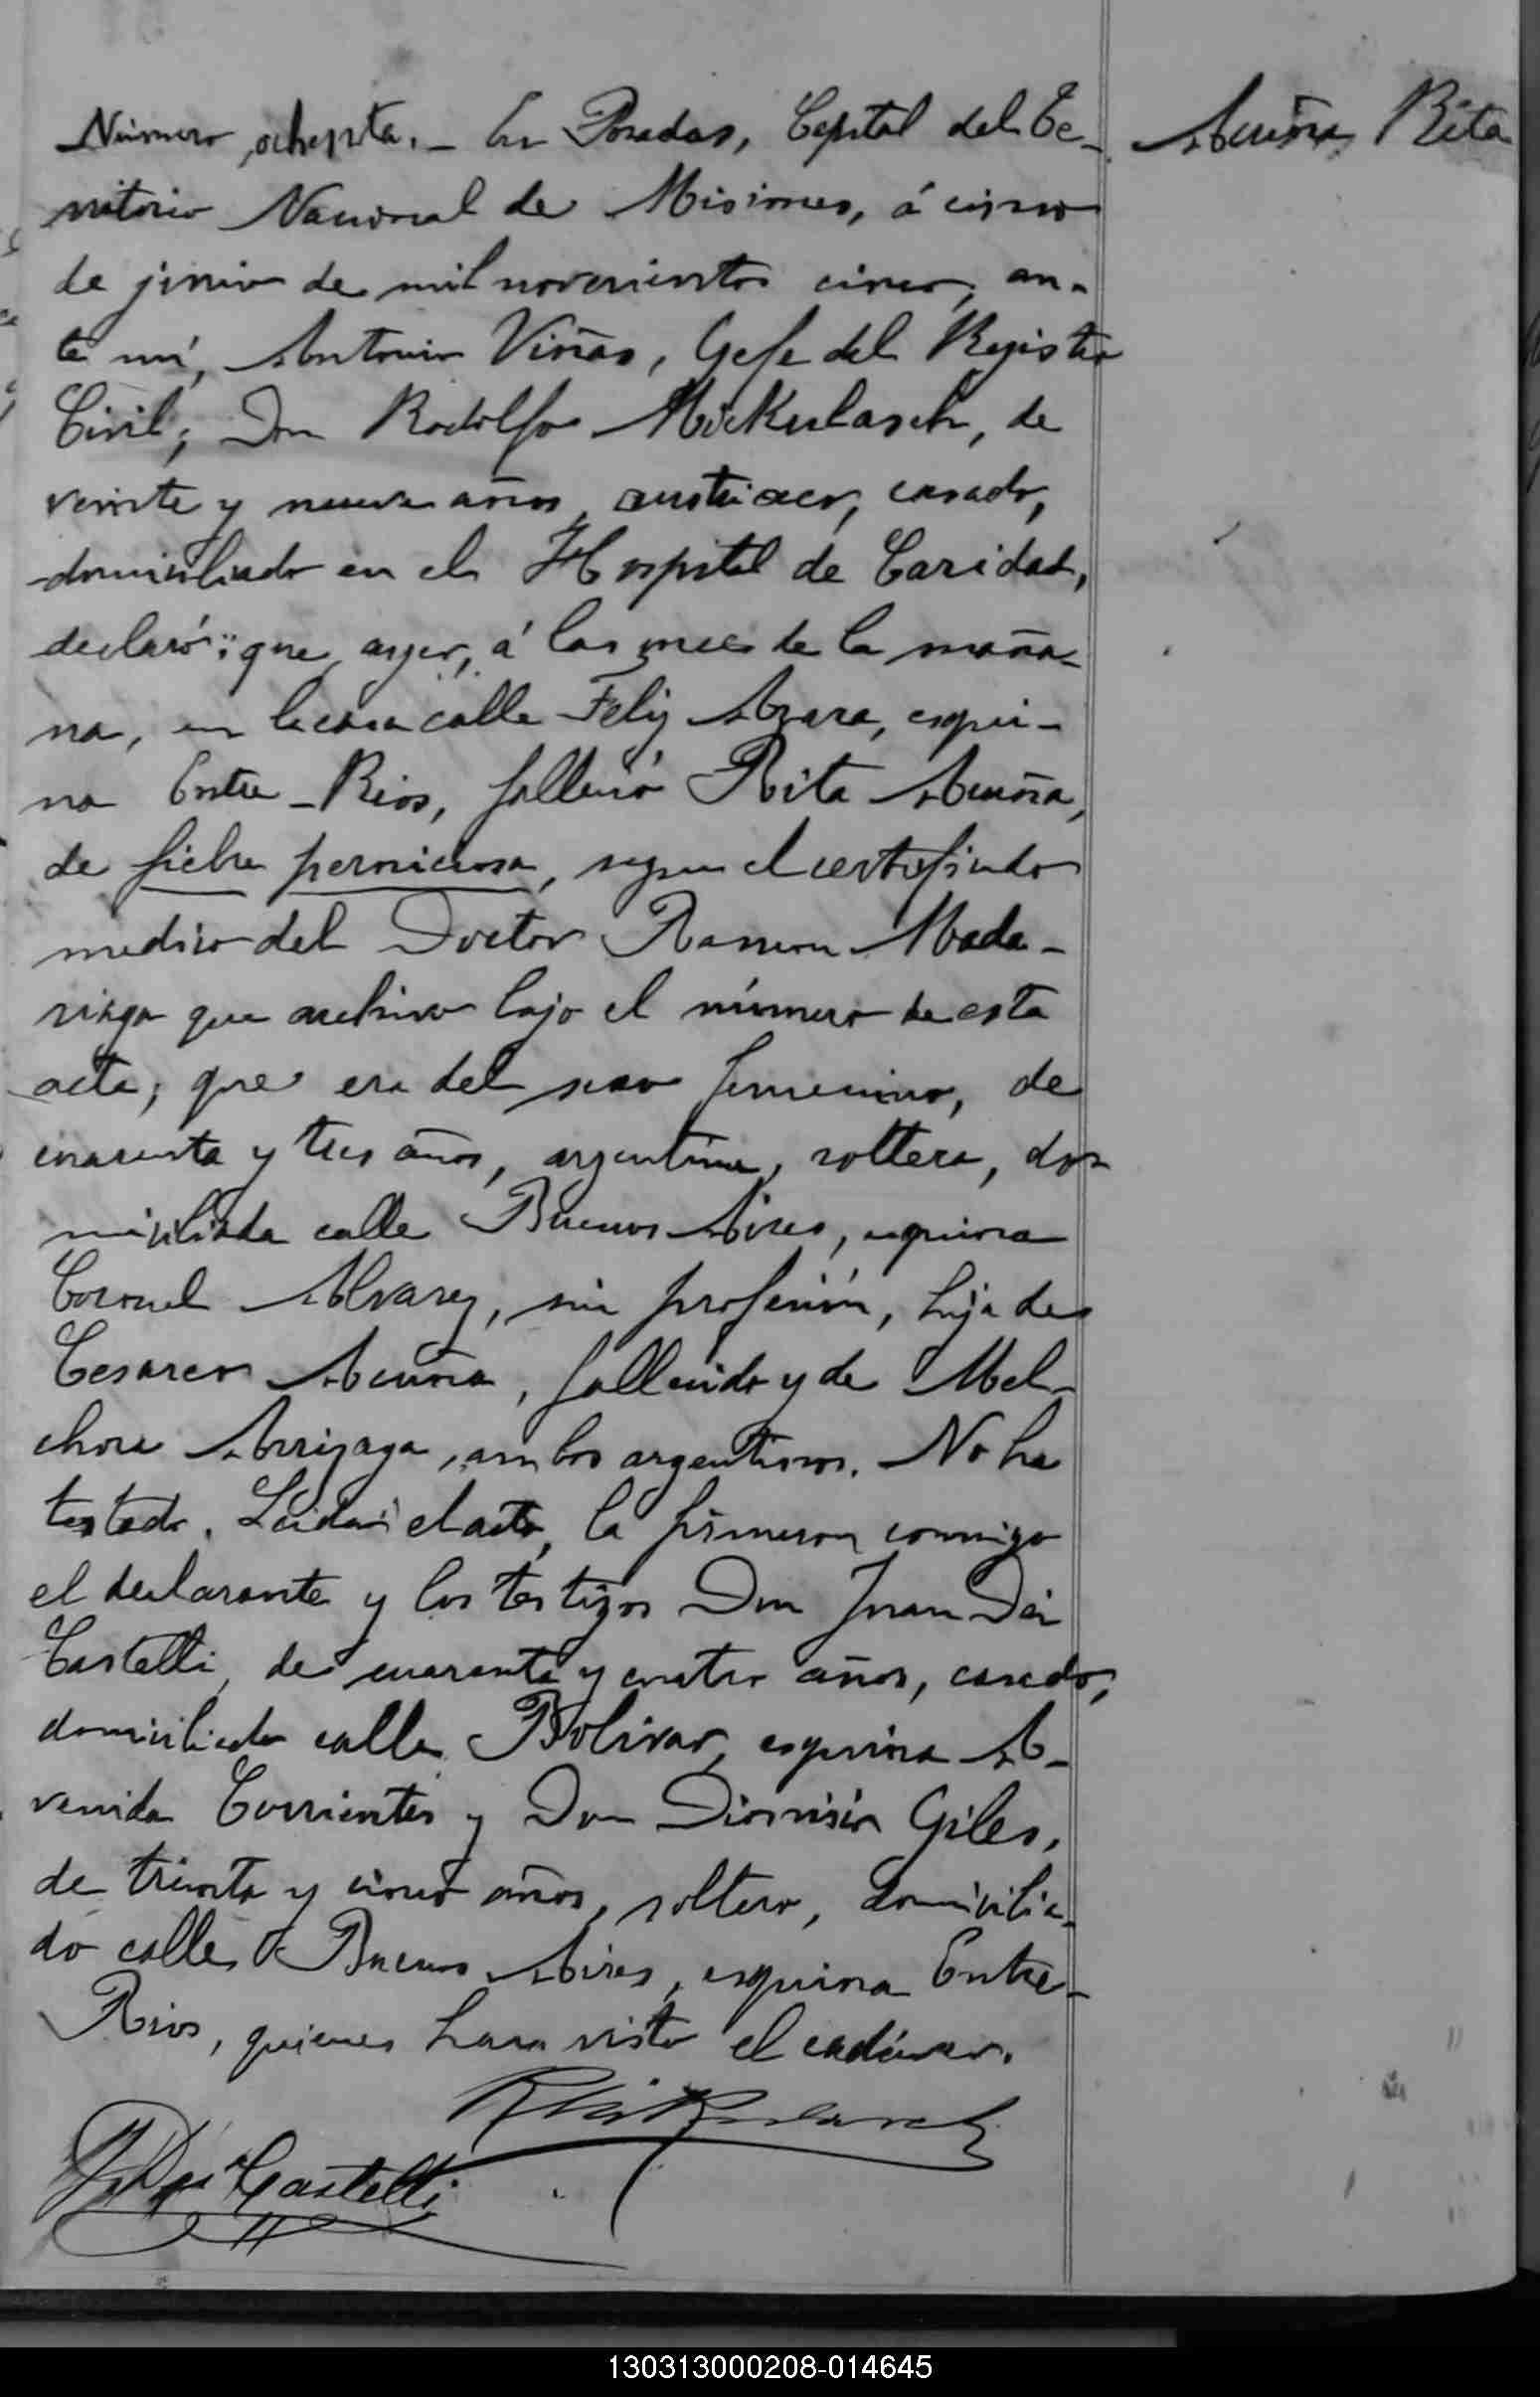 Número ochenta.- En Posadas, Capital del Te-
Acuña Rita
rritorio Nacional de Misiones, á cinco
de junio de mil novecientos cinco, an-
te mí, Antonio Viñas, Gefe del Registro
Civil; Don Rodolfo Mickulasch, de
veinte y nueve años, austriaco, casado,
domiciliado en el Hospital de Caridad,
declaró: que ayer, á las once de la maña-
na, en la casa calle Feliz Azara, esqui-
na Entre-Rios, falleció Rita Acuña,
de fiebre perniciosa, segun el certificado
medico del Doctor Ramon Mada-
riaga que archivo bajo el número de esta
acta; que era del sexo femenino, de
cuarenta y tres años, argentina, soltera, do-
miciliada calle Buenos Aires, esquina
Coronel Alvarez, sin profesión, hija de
Cesareo Acuña, fallecido y de Mel-
chora Arrizaga, ambos argentinos. No ha
testado. Leida el acta, la firmaron conmigo
el declarante y los testigos Don Juan Dei
Castelli, de cuarenta y cuatro años, casado,
domiciliado calle Bolivar, esquina A-
venida Corrientes y Don Dionisio Giles,
de treinta y cinco años, soltero, domicilia-
do calle Buenos Aires, esquina Entre-
Rios, quienes han visto el cadáver.
R Mickulasch
J. Dei Castelli
130313000208-014645